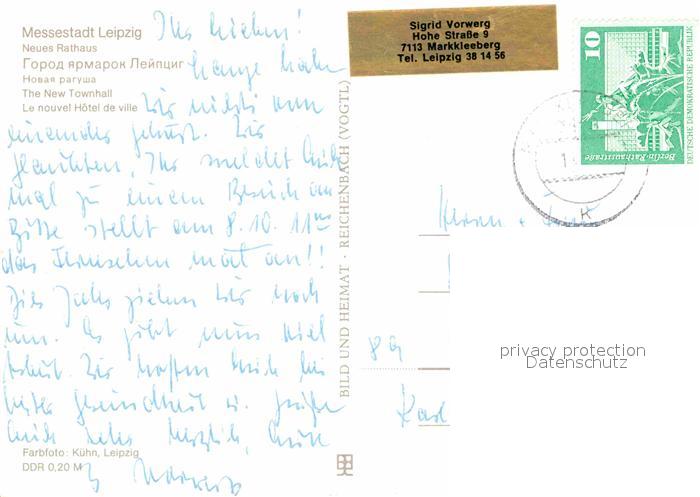 Messestadt Leipzig
Neues Rathaus
Город ярмарок Лейпциг
Новая ратуша
The New Townhall
Le nouvel Hôtel de ville
Ihr Lieben!
Lange haben
wir nichts von
einander gehört. Wir
glaubten, Ihr meldet Euch
mal zu einem Besuch an
Bitte stellt am 8.10. 11
das Fernsehen mal an!!
Dies Jahr ziehen wir noch
um. Es gibt nun viel
Arbeit. Wir hoffen Euch bei
bester Gesundheit u. grüßen
Euch sehr herzlich, Eure
Vorwerg
Farbfoto: Kühn, Leipzig
DDR 0,20 M
BILD UND HEIMAT · REICHENBACH (VOGTL)
Sigrid Vorwerg
Hohe Straße 9
7113 Markkleeberg
Tel. Leipzig 38 14 56
10
Berlin-Rathausstraße
DEUTSCHE DEMOKRATISCHE REPUBLIK
Herrn +
89
privacy protection
Datenschutz